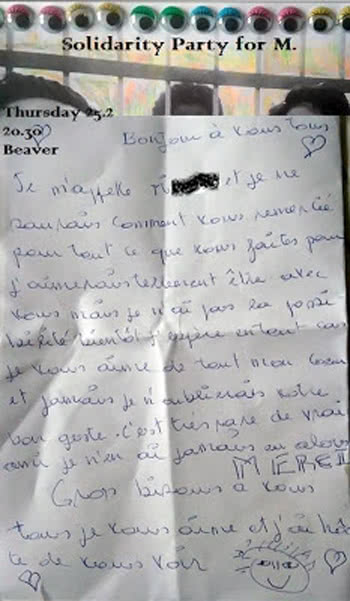 Solidarity Party for M.
Thursday 25.2
20.30
Beaver
Bonjour à vous tous
Je m'appelle et je ne
saurais comment vous remercié
pour tout ce que vous faites pour
j'aimerais tellement être avec
vous mais je n'ai pas la possi
bilité bientôt j'espère en tout cas
je vous aime de tout mon coeur
et jamais je n'oublierais votre
bon geste. c'est très rare de vrai
ami je n'en ai jamais eu alors
MERCI
Gros bisous à vous
tous je vous aime et j'ai hâ
te de vous voir